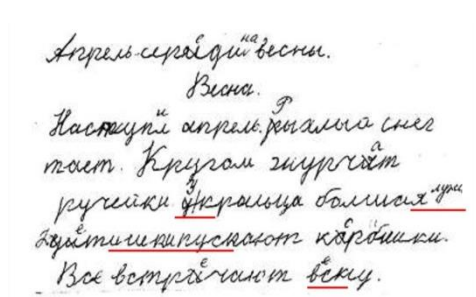 Апрель-серединавесны.
Весна.
Наступил апрель. Рыхлыа снег
тает. Кругом журчат
ручейки укральца болшися лужи
Детишкипускают каробшки.
Все встречают вёску.